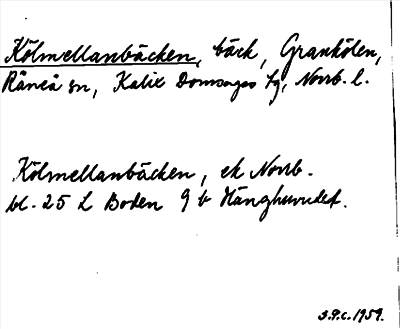 Kölmellanbäcken, bäck, Granhölen,
Råneå sn, Kalix Domsagas tg, Norrb. l.
Kölmellanbäcken, ek Norrb.
bl. 25 L Boden 9 b Hänghuvudet.
S.P.C. 1959.